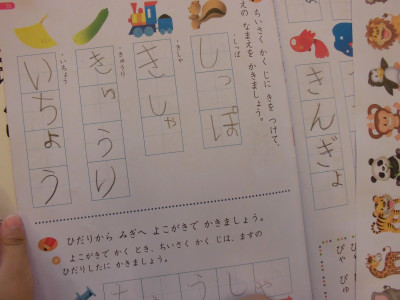 ちいさく かく じに きを つけて、
えの なまえを かきましょう。
しっぽ
しっぽ
きしゃ
きしゃ
きゅうり
きゅうり
いちょう
いちょう
ひだりから みぎへ よこがきで かきましょう。
よこがきで かく とき、ちいさく かく じは、ますの
ひだりしたに かきましょう。
うしゃ
きんぎょ
ぴゃ ぴゅ
びゃ びゅ